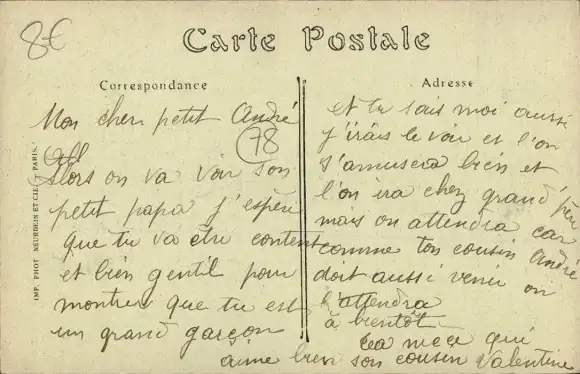 8€
Carte Postale
Correspondance
Mon cher petit André
78
Alors on va voir son
petit papa j'espère
que tu va être content
et bien gentil pour
montrer que tu est
un grand garçon
Adresse
et tu sais moi aussi
j'irais le voir et l'on
s'amusera bien et
l'on ira chez grand père
mais on attendra car
comme ton cousin André
doit aussi venir on
l'attendra
à bientôt
ta niece qui
aime bien son cousin Valentine
IMP. PHOT NEURDEIN ET CIE PARIS.